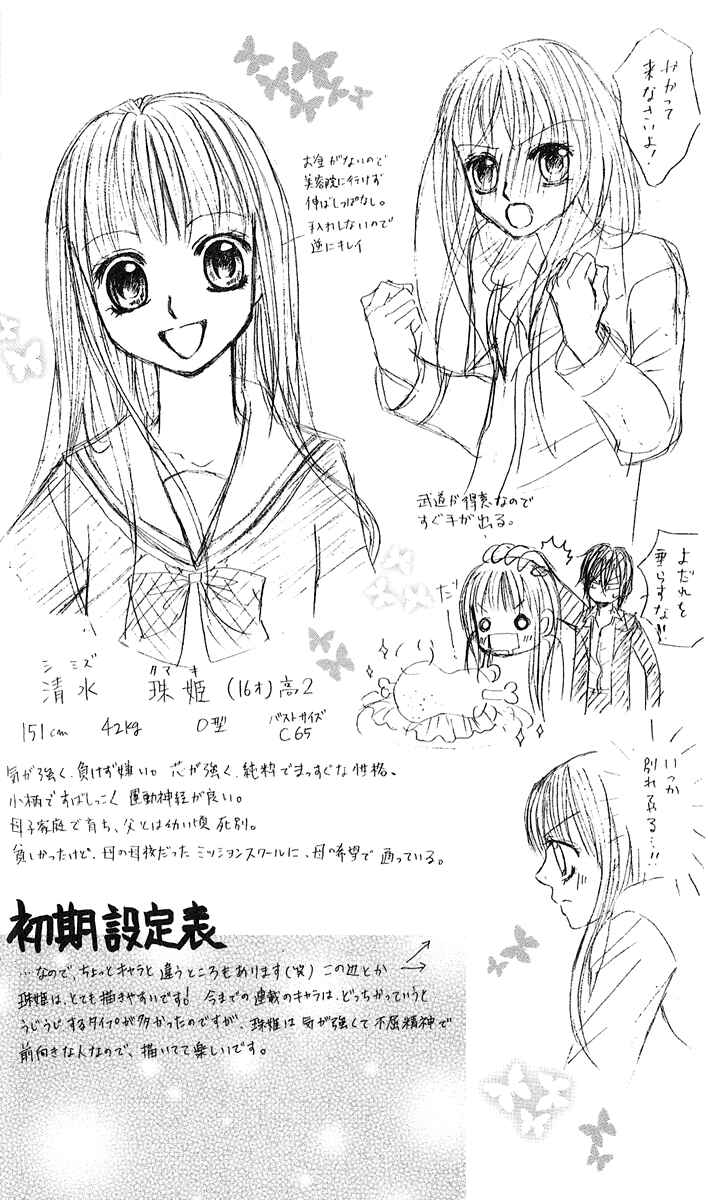 かかって
来なさいよ!
お金がないので
美容院に行けず
伸ばしっぱなし。
手入れしないので
逆にキレイ
武道が得意なので
すぐ手が出る。
よだれを
垂らすな!!
だー
シミズ タマキ
清水 珠姫 (16才) 高2
151cm 42kg O型 バストサイズ C65
気が強く、負けず嫌い。芯が強く、純粋でまっすぐな性格。
小柄ですばしっこく 運動神経が良い。
母子家庭で育ち、父とは幼い頃 死別。
貧しかったけど、母の母校だった ミッションスクールに、母の希望で 通っている。
いつか
別れてやる…!!
初期設定表
…なので、ちょっとキャラと 違うところもあります(笑) この辺とか
珠姫は、とても描きやすいです! 今までの連載のキャラは、どっちかっていうと
うじうじするタイプが多かったのですが、珠姫は 気が強くて 不屈精神で
前向きな人なので、描いてて楽しいです。